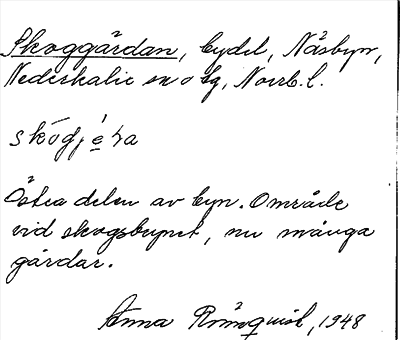 Skoggärdan, bydel, Näsbyn,
Nederkalix sn o tg, Norrb. l.
skógjḙ́ra
Östra delen av byn. Område
vid skogsbrynet, nu många
gårdar.
Anna Rönnquist, 1948